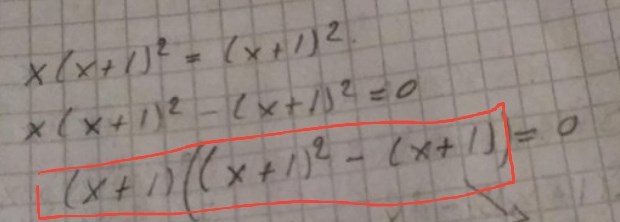 x(x+1)² = (x+1)².
x(x+1)² - (x+1)² = 0
(x+1)((x+1)² - (x+1)) = 0